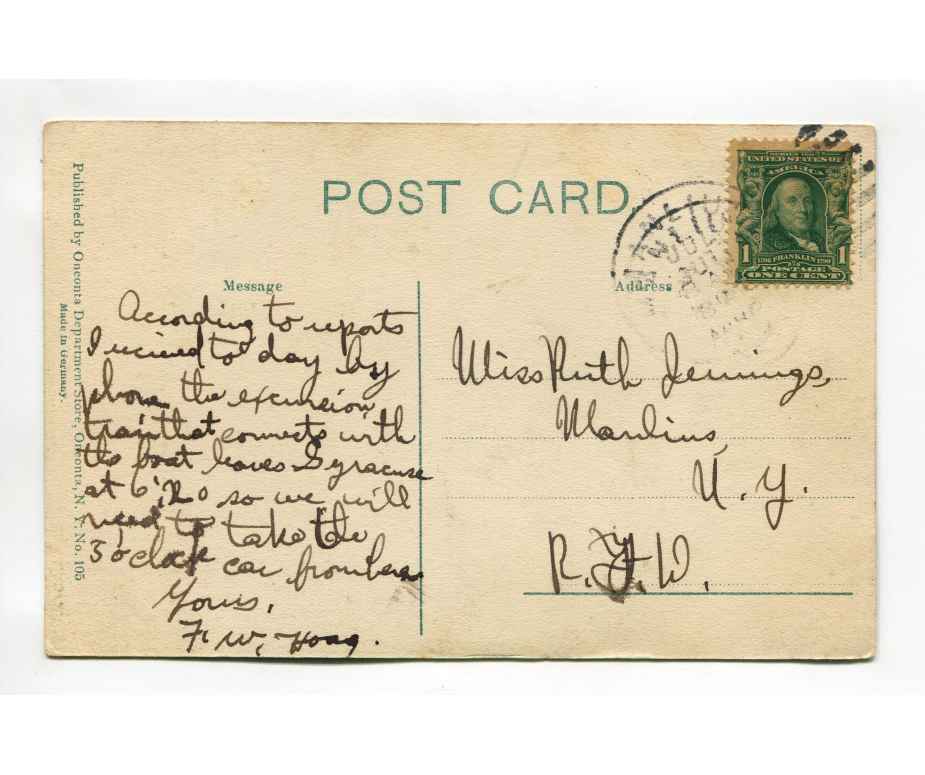 POST CARD.
SERIES 1902
UNITED STATES OF
AMERICA
1 1
1706 FRANKLIN 1790
POSTAGE
ONE CENT
JUL
Published by Oneonta Department Store, Oneonta, N. Y. No. 105
Made in Germany.
Message
According to reports
I recieved to day by
phone the excursion
train that connects with
the boat leaves Syracuse
at 6:20 so we will
need to take the
3 o'clock car from here
Yours,
F. W. Hoag.
Address.
Miss Ruth Jennings,
Manlius,
N. Y.
R. F. D.